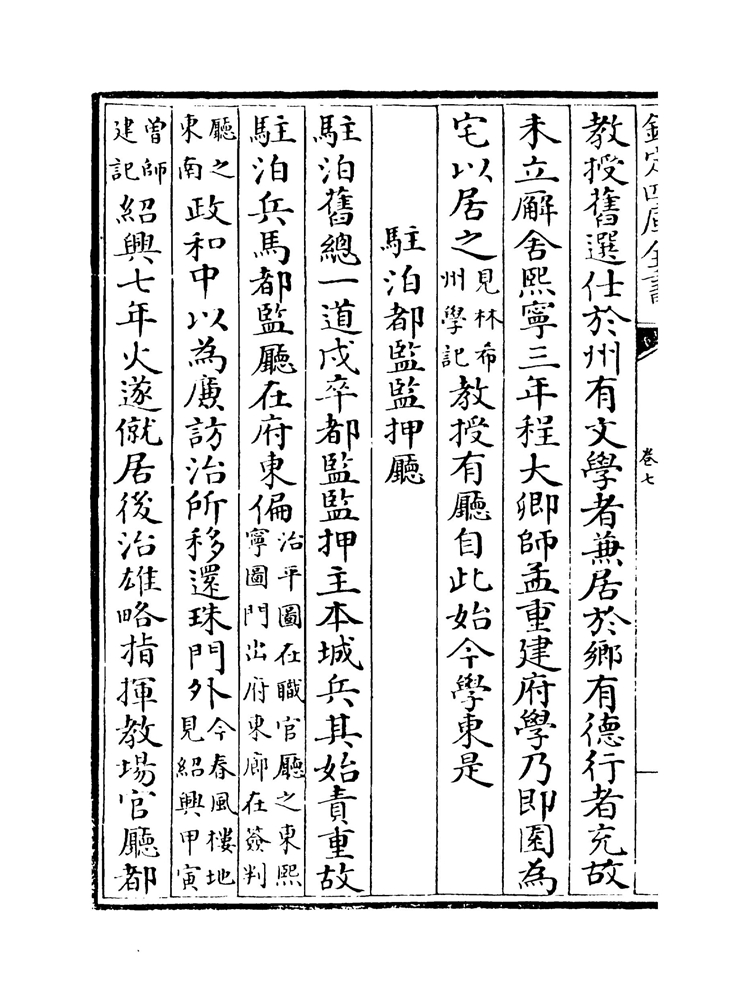 欽定四庫全書
卷七
教授舊選仕於州有文學者兼居於鄉有德行者充故
未立廨舍熙寧三年程大卿師孟重建府學乃即園為
宅以居之見林希州學記教授有廳自此始今學東是
駐泊都監監押廳
駐泊舊總一道戍卒都監監押主本城兵其始責重故
駐泊兵馬都監廳在府東偏治平圖在職官廳之東熙寧圖門出府東廊在簽判
廳之東南政和中以為廉訪治所移還珠門外今春風樓地見紹興甲寅
曾師建記紹興七年火遂僦居後治雄略指揮教場官廳都